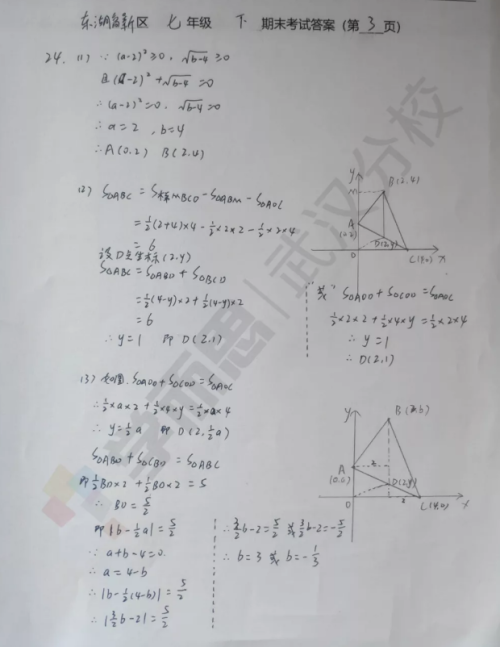 东湖高新区 七 年级 下 期末考试答案(第 3 页)
24. (1) ∵ (a-2)²≥0, √b-4 ≥0
且(a-2)²+√b-4=0
∴(a-2)²=0, √b-4=0
∴a=2, b=4
∴A(0,2) B(2,4)
(2) S△ABC = S梯MBCO - S△ABM - S△AOC
=½(2+4)×4-½×2×2-½×2×4
=6
设D点坐标(2,y)
S△ABC=S△ABD+S△BCD
=½(4-y)×2+½(4-y)×2
=6
∴y=1 即D(2,1)
"或" S△AOD+S△COD=S△AOC
½×2×2+½×4×y=½×2×4
∴y=1
∴D(2,1)
y
M
B(2,4)
A
(0,2)
D(2,y)
O
C(4,0)
x
(3) 如图,S△AOD+S△COD=S△AOC
∴½×a×2+½×4×y=½×a×4
∴y=½a 即D(2,½a)
S△ABD+S△CBD=S△ABC
即½BD×2+½BD×2=5
∴BD=5/2
即|b-½a|=5/2
∵a+b-4=0
∴a=4-b
∴|b-½(4-b)|=5/2
∴|3/2b-2|=5/2
∴3/2b-2=5/2 或 3/2b-2=-5/2
∴b=3 或 b=-1/3
y
A
D(2,y)
O
C(4,0)
x
学而思|武汉分校